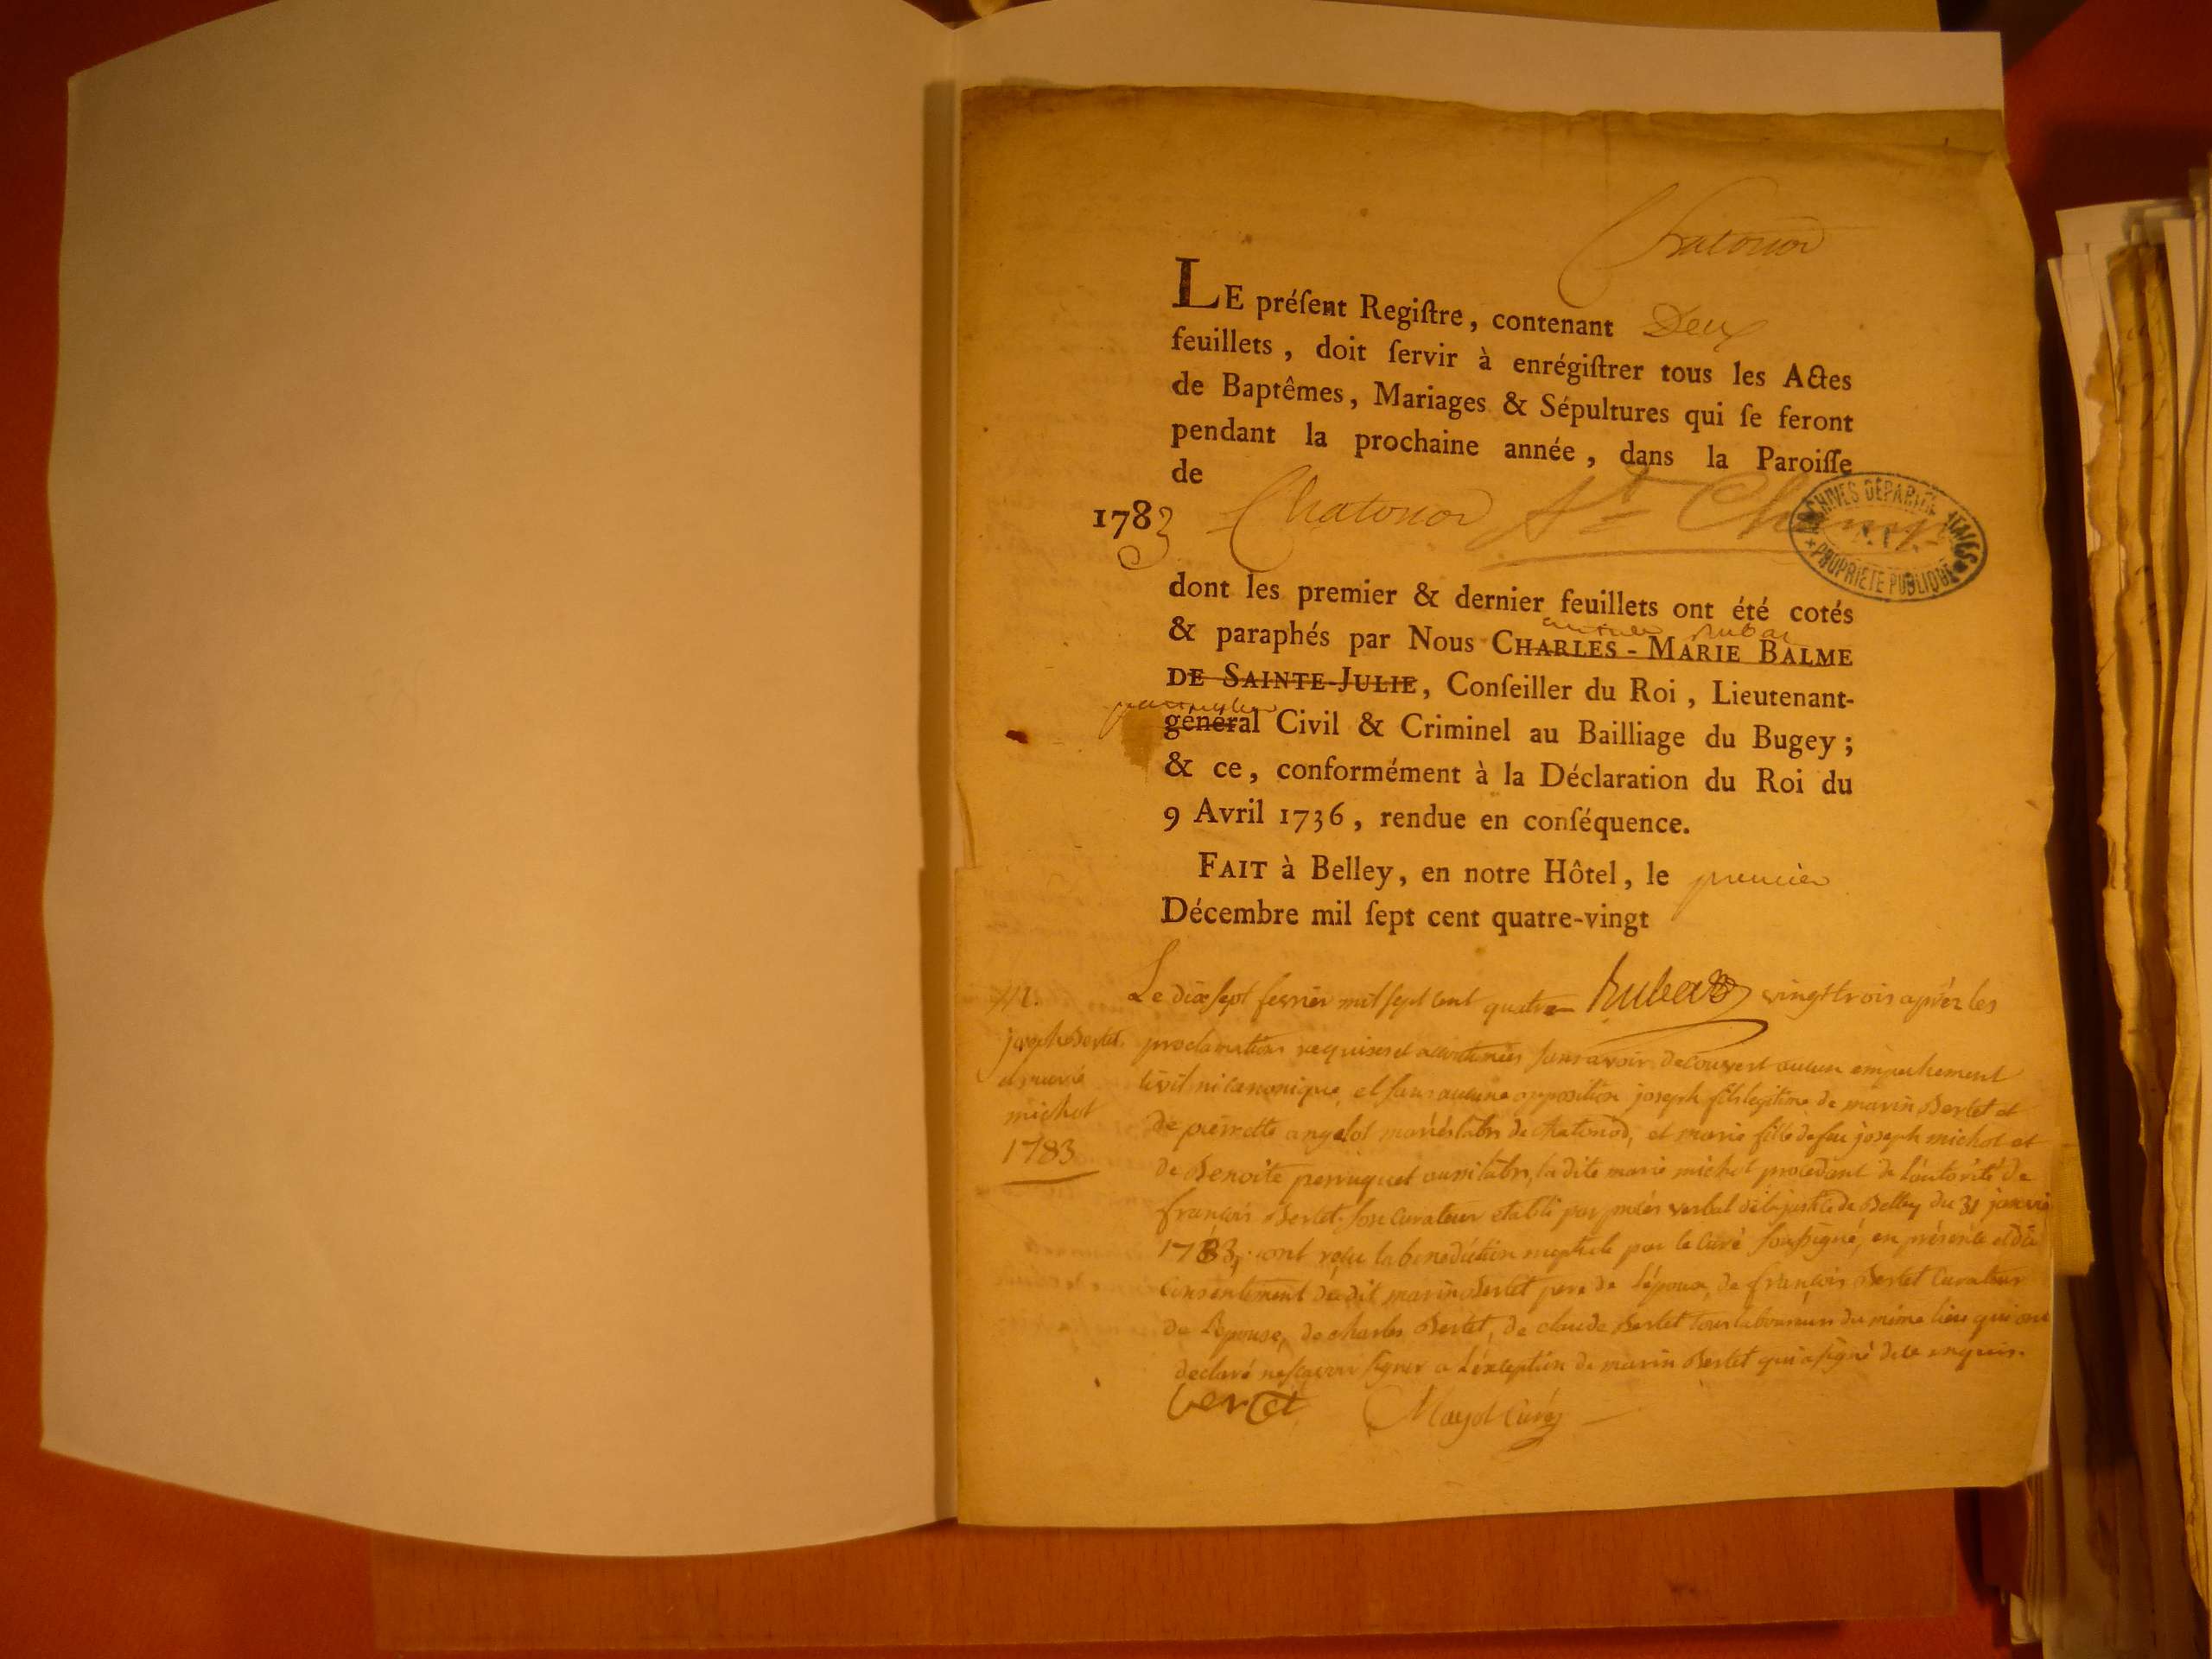 Chatonod
LE préſent Regiſtre, contenant Deux
feuillets, doit ſervir à enrégiſtrer tous les Actes
de Baptêmes, Mariages & Sépultures qui ſe feront
pendant la prochaine année, dans la Paroiſſe
de
1783 Chatonod
ARCHIVES DÉPARTEMENTALES
PROPRIÉTÉ PUBLIQUE
dont les premier & dernier feuillets ont été cotés
& paraphés par Nous CHARLES-MARIE BALME
DE SAINTE-JULIE, Conſeiller du Roi, Lieutenant-
particulier
général Civil & Criminel au Bailliage du Bugey;
& ce, conformément à la Déclaration du Roi du
9 Avril 1736, rendue en conſéquence.
FAIT à Belley, en notre Hôtel, le premier
Décembre mil ſept cent quatre-vingt
Le dix sept fevrier mil sept cent quatre vingt trois après les
joseph Berlet
et marie
michot
1783
proclamations requises et accoutumées sans avoir decouvert aucun empechement
civil ni canonique, et sans aucune opposition joseph fils legitime de marin Berlet et
de pierrette angelot mariés labrs de chatonod, et marie fille de feu joseph michot et
de Benoite perruquet aussi labrs, la dite marie michot procedant de l'autorité de
françois Berlet son curateur etabli par procès verbal de la justice de Belley du 31 janvier
1783, ont reçu la benediction nuptiale par le curé soussigné, en présence et du
consentement du dit marin Berlet pere de l'époux, de françois Berlet curateur
de l'epouse, de charles Berlet, de claude Berlet tous laboureurs du même lieu qui ont
declaré ne sçavoir signer a l'exception de marin Berlet qui a signé de ce enquis.
Berlet Mayol curé